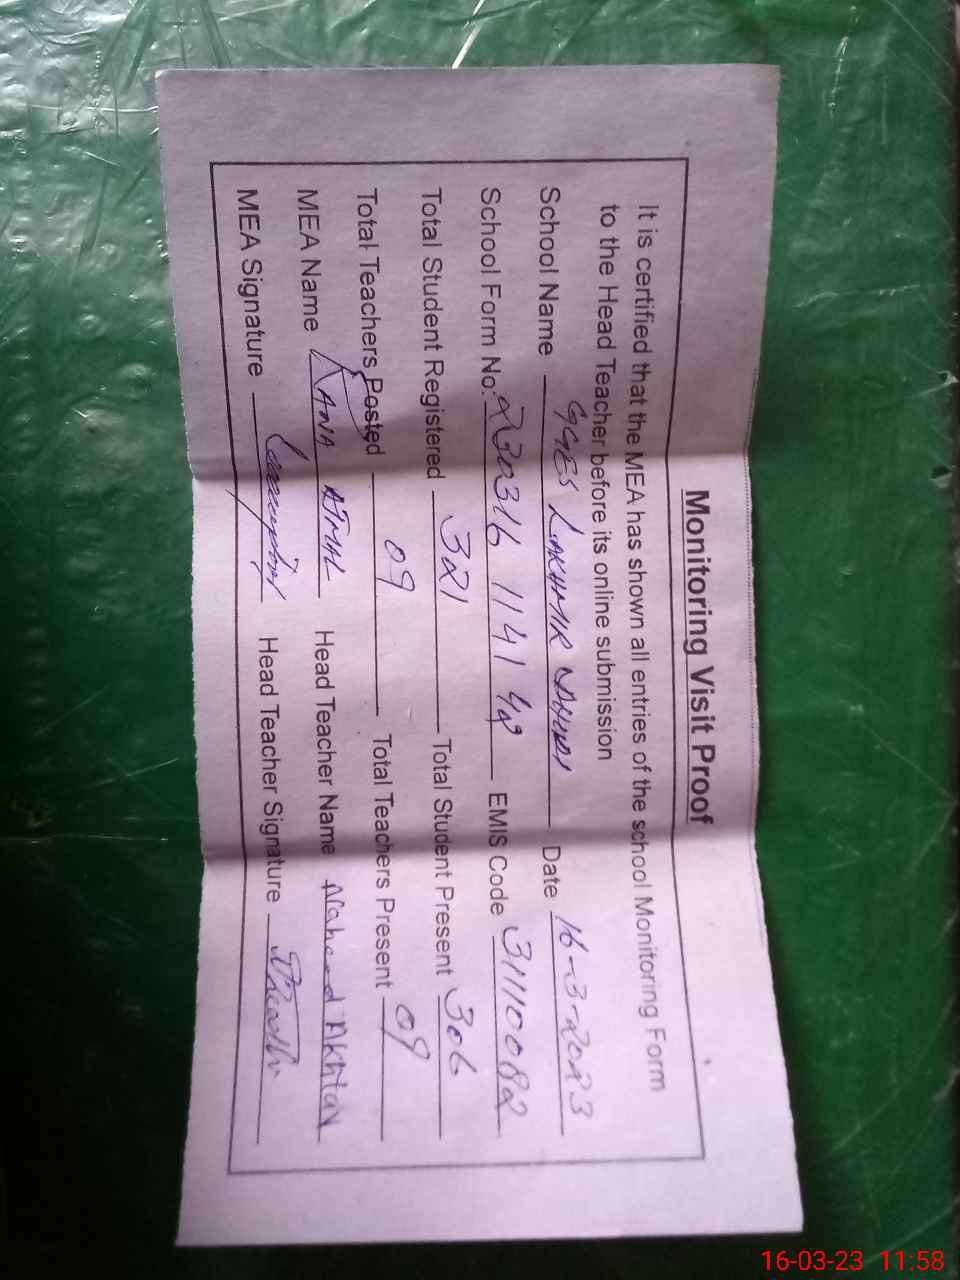 Monitoring Visit Proof
It is certified that the MEA has shown all entries of the school Monitoring Form
to the Head Teacher before its online submission
School Name GGES LAKHMIR Date 16-3-2023
School Form No. 23031611 41 48 EMIS Code 31110082
Total Student Registered 321 Total Student Present 306
Total Teachers Posted 09 Total Teachers Present 09
MEA Name RANA AJMAL Head Teacher Name Naheed Akhtar
MEA Signature Head Teacher Signature
16-03-23 11:58